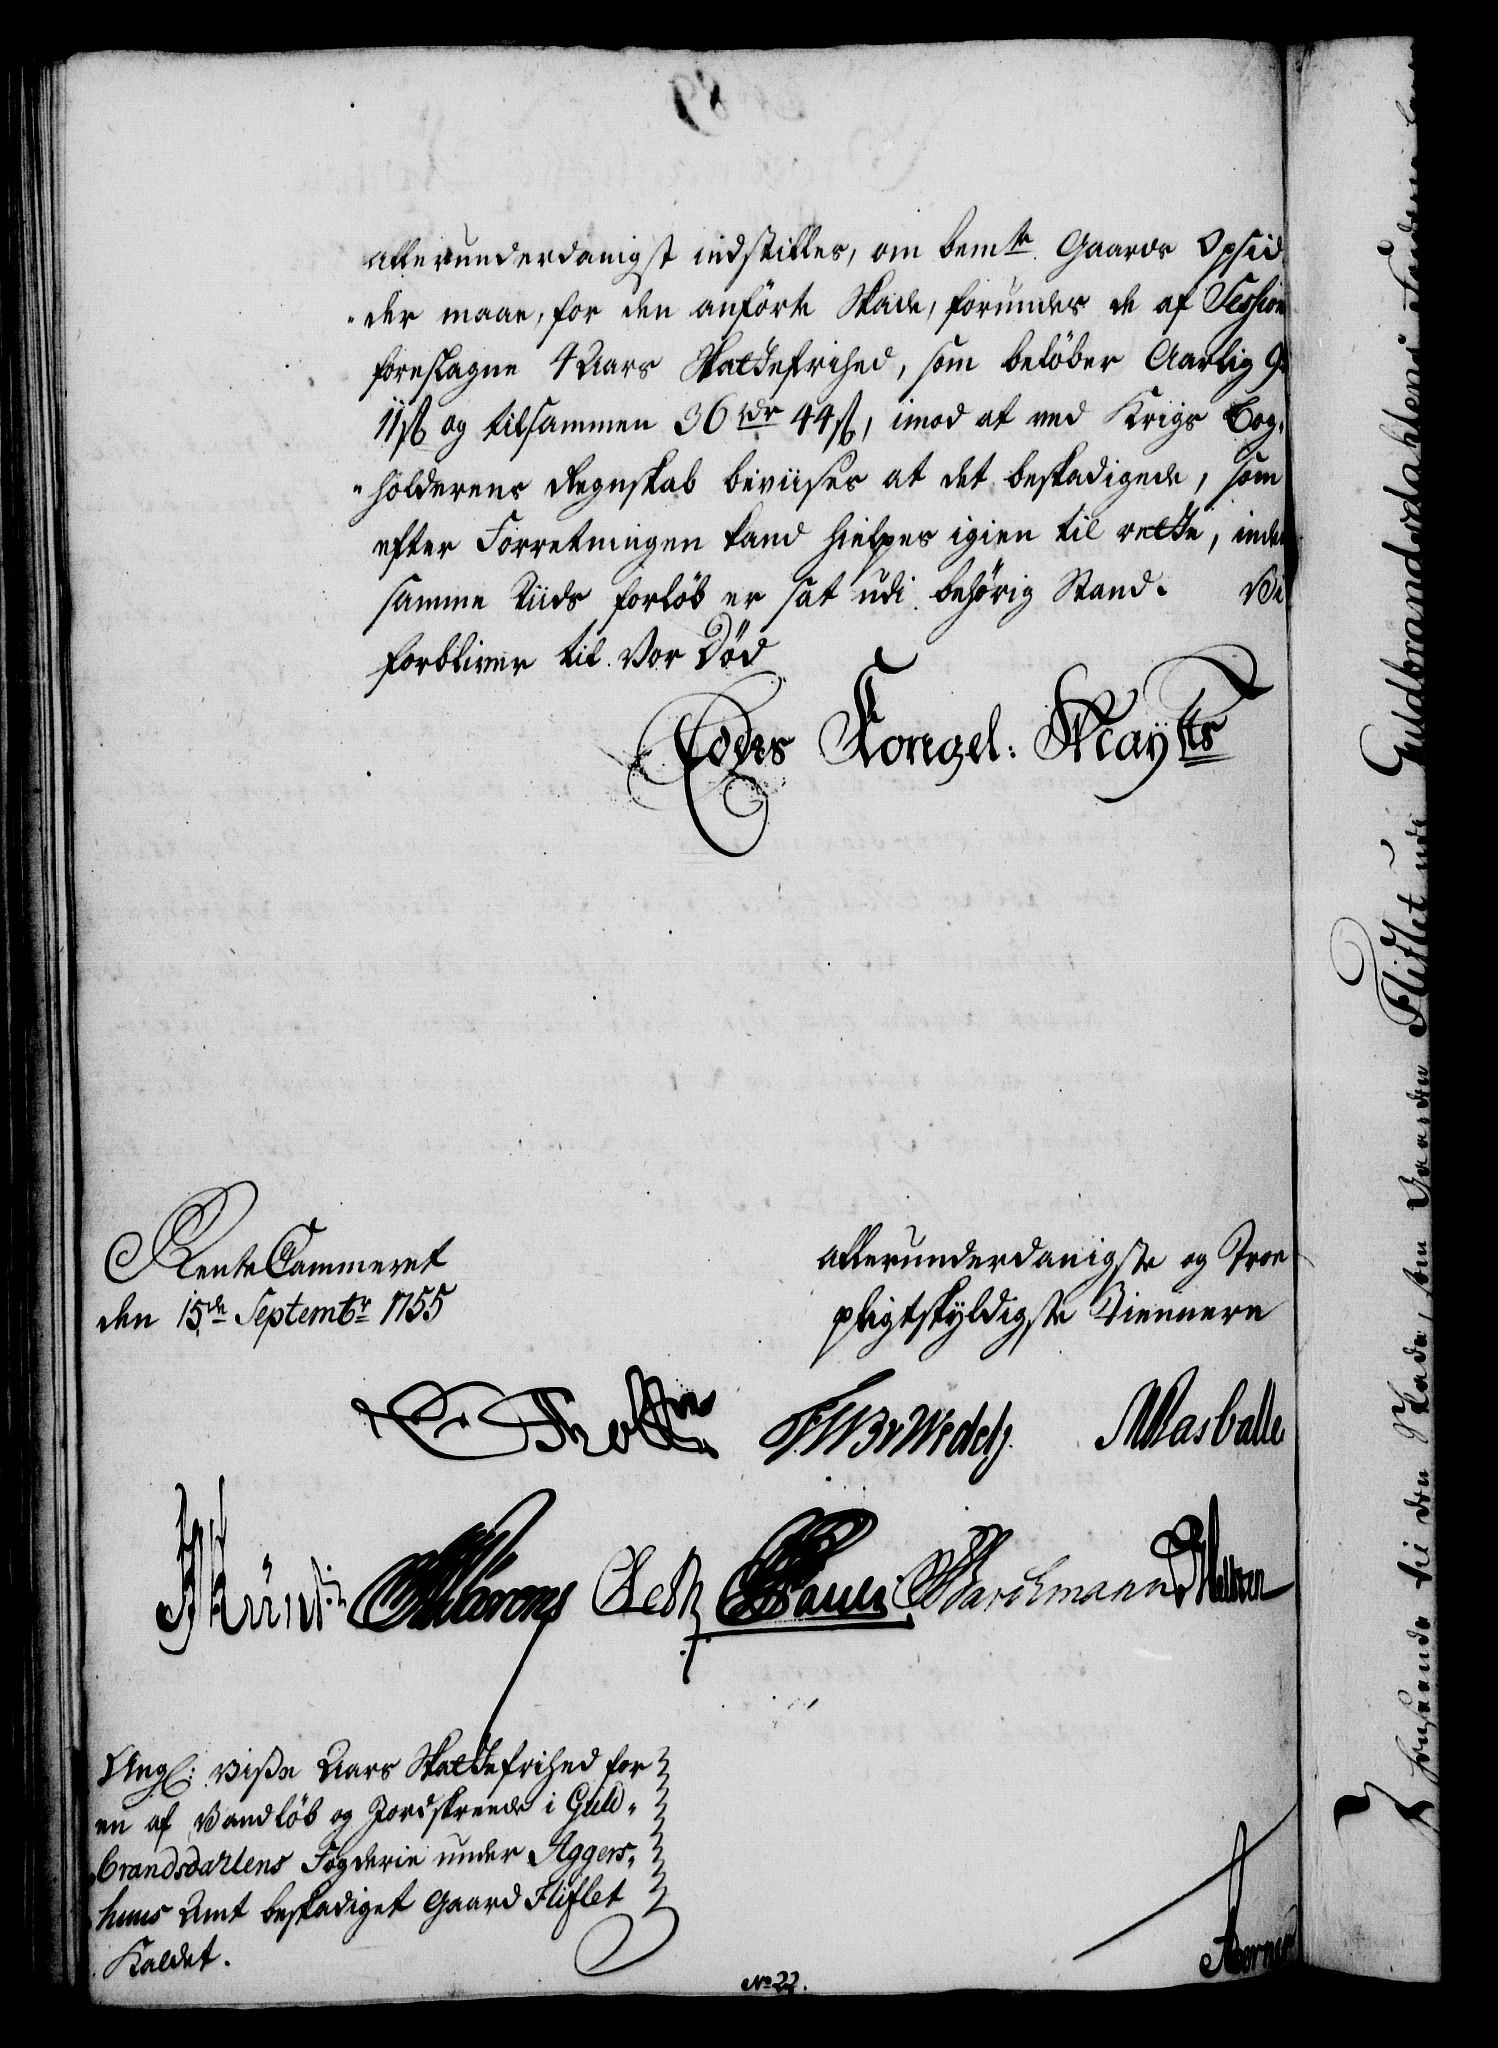 allerunderdanigst indstilles, om bemte Gaards Opsid¬
„der maae, for den anførte Skade, forundes de af Session
foreslagne 4 Aars Skattefrihed, som beløber Aarlig 9
11 ß og tilsammen 36 rdr 44 ß, imod at ved Krigs Bog¬
„holderens Regnskab beviises at det beskadigede, som
efter Forretningen kand hielpes igien til rette, inden
samme Tiids forløb er sat udi behörig Stand. Vi
forbliver til Vor Död
Eders Kongel: Mayts
RenteCammeret
den 15de Septembr 1755
allerunderdanigste og Troe
pligtskyldigste Tiennere
Holst
FWBrWedely
Masballe
Pauli
Barchmann
Ang: visse Aars Skattefrihed for
en af Vandløb og Jordskreede i Guld„
brandsdahlens Fogderie under Aggers„
huus Amt beskadiget Gaard Fliflet
Kaldet.
No 22.
henseende til den Skade, som Gaarden Fliflet udi Guldbrandsdahlens